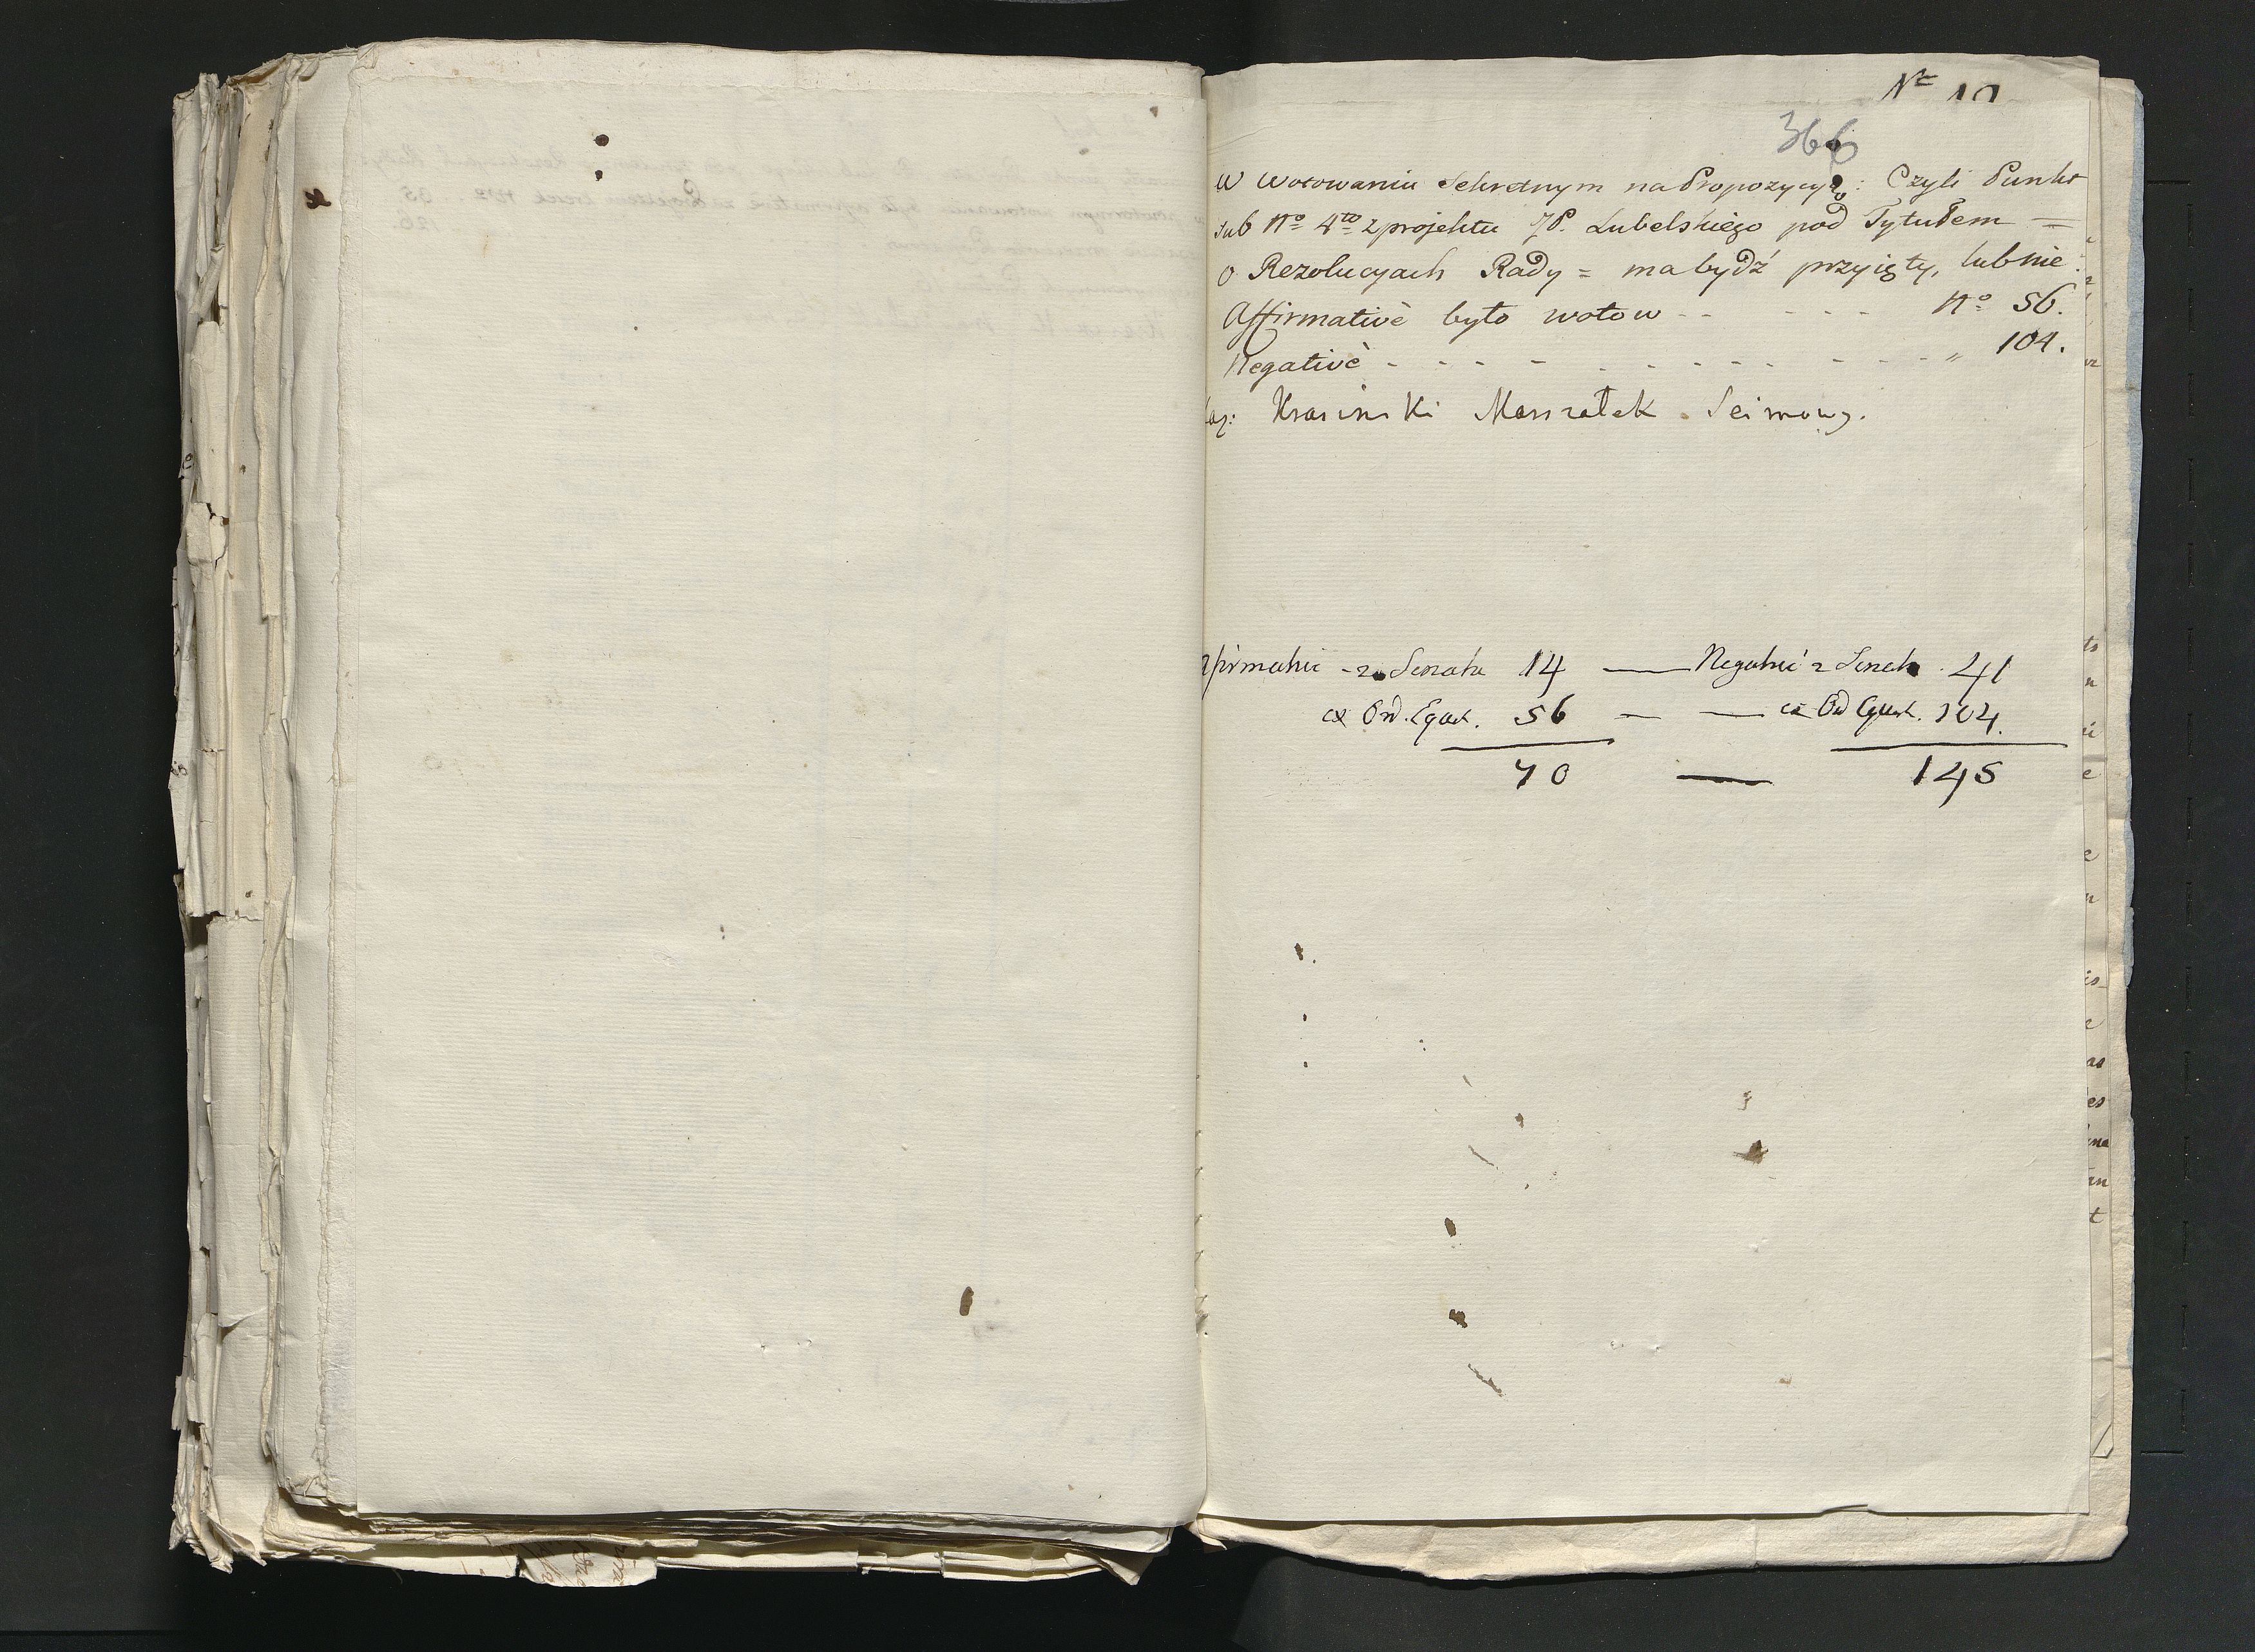 366
W Wotowaniu Sekretnym na Propozycyą: Czyli Punkt
sub Nº 4to z projektu JP. Lubelskiego pod Tytułem =
o Rezolucyach Rady = ma bydź przyięty, lub nie.
Affirmativè było wotow - - - - - Nº 56.
Negativè - - - - - - - - - - - „ 104.
Krasinski Marszałek Seimowy.
z Senatu 14 — Negativè z Senatu 41
ex Ord. Equest. 56 — — ex Ord Equest. 104.
70 — 145